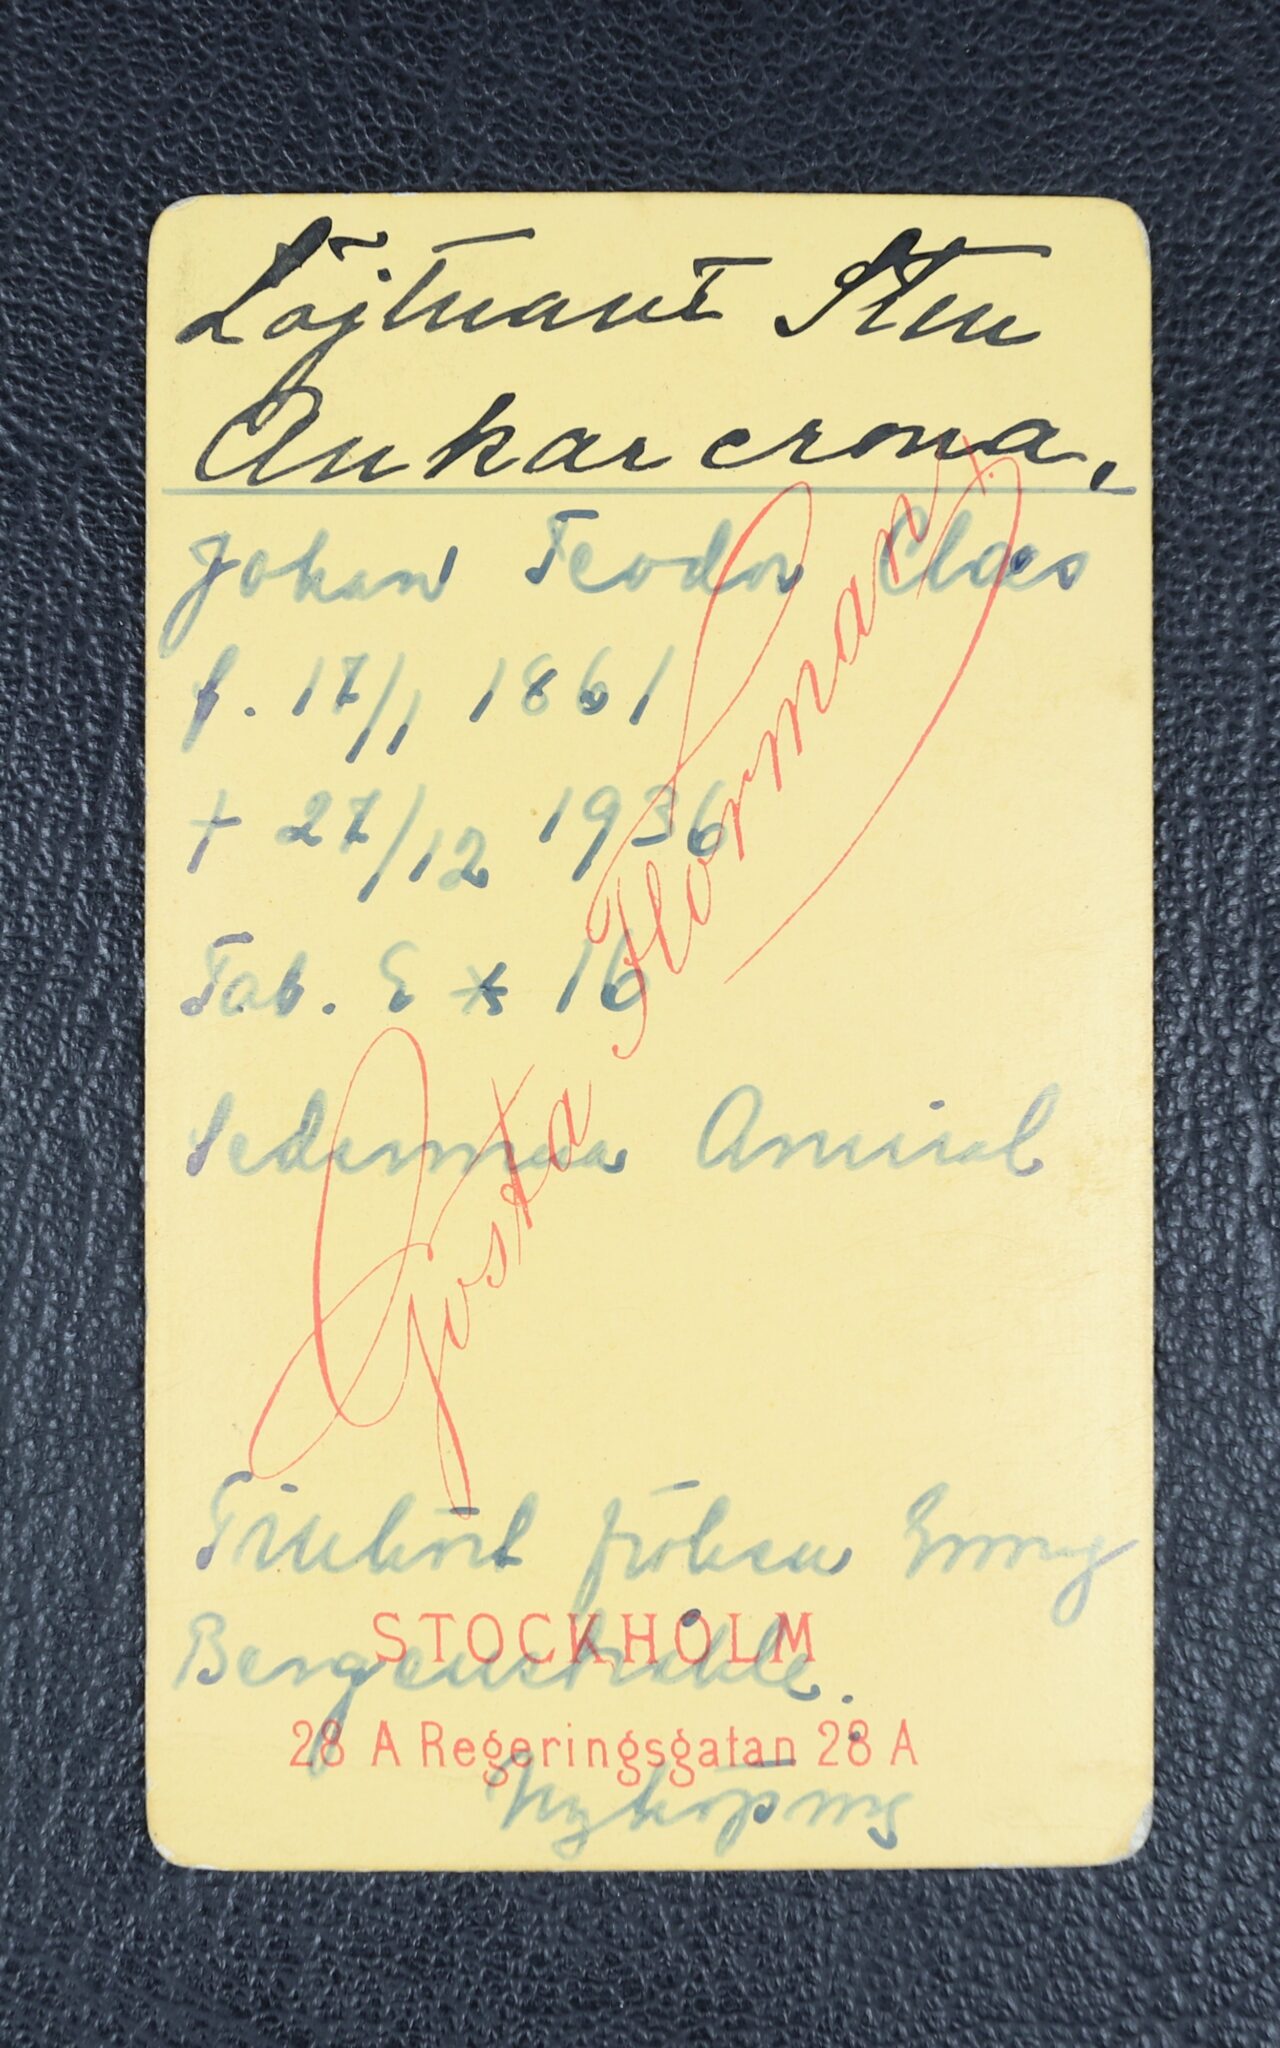 Löjtnant Sten
Ankarcrona.
Johan Teodor Claes
f. 17/1 1861
† 27/12 1936
Tab. E * 16
Sedermera Amiral
Gösta Florman
Tillhört fröken Emmy
Bergenstråhle.
STOCKHOLM
28 A Regeringsgatan 28 A
Nyköping